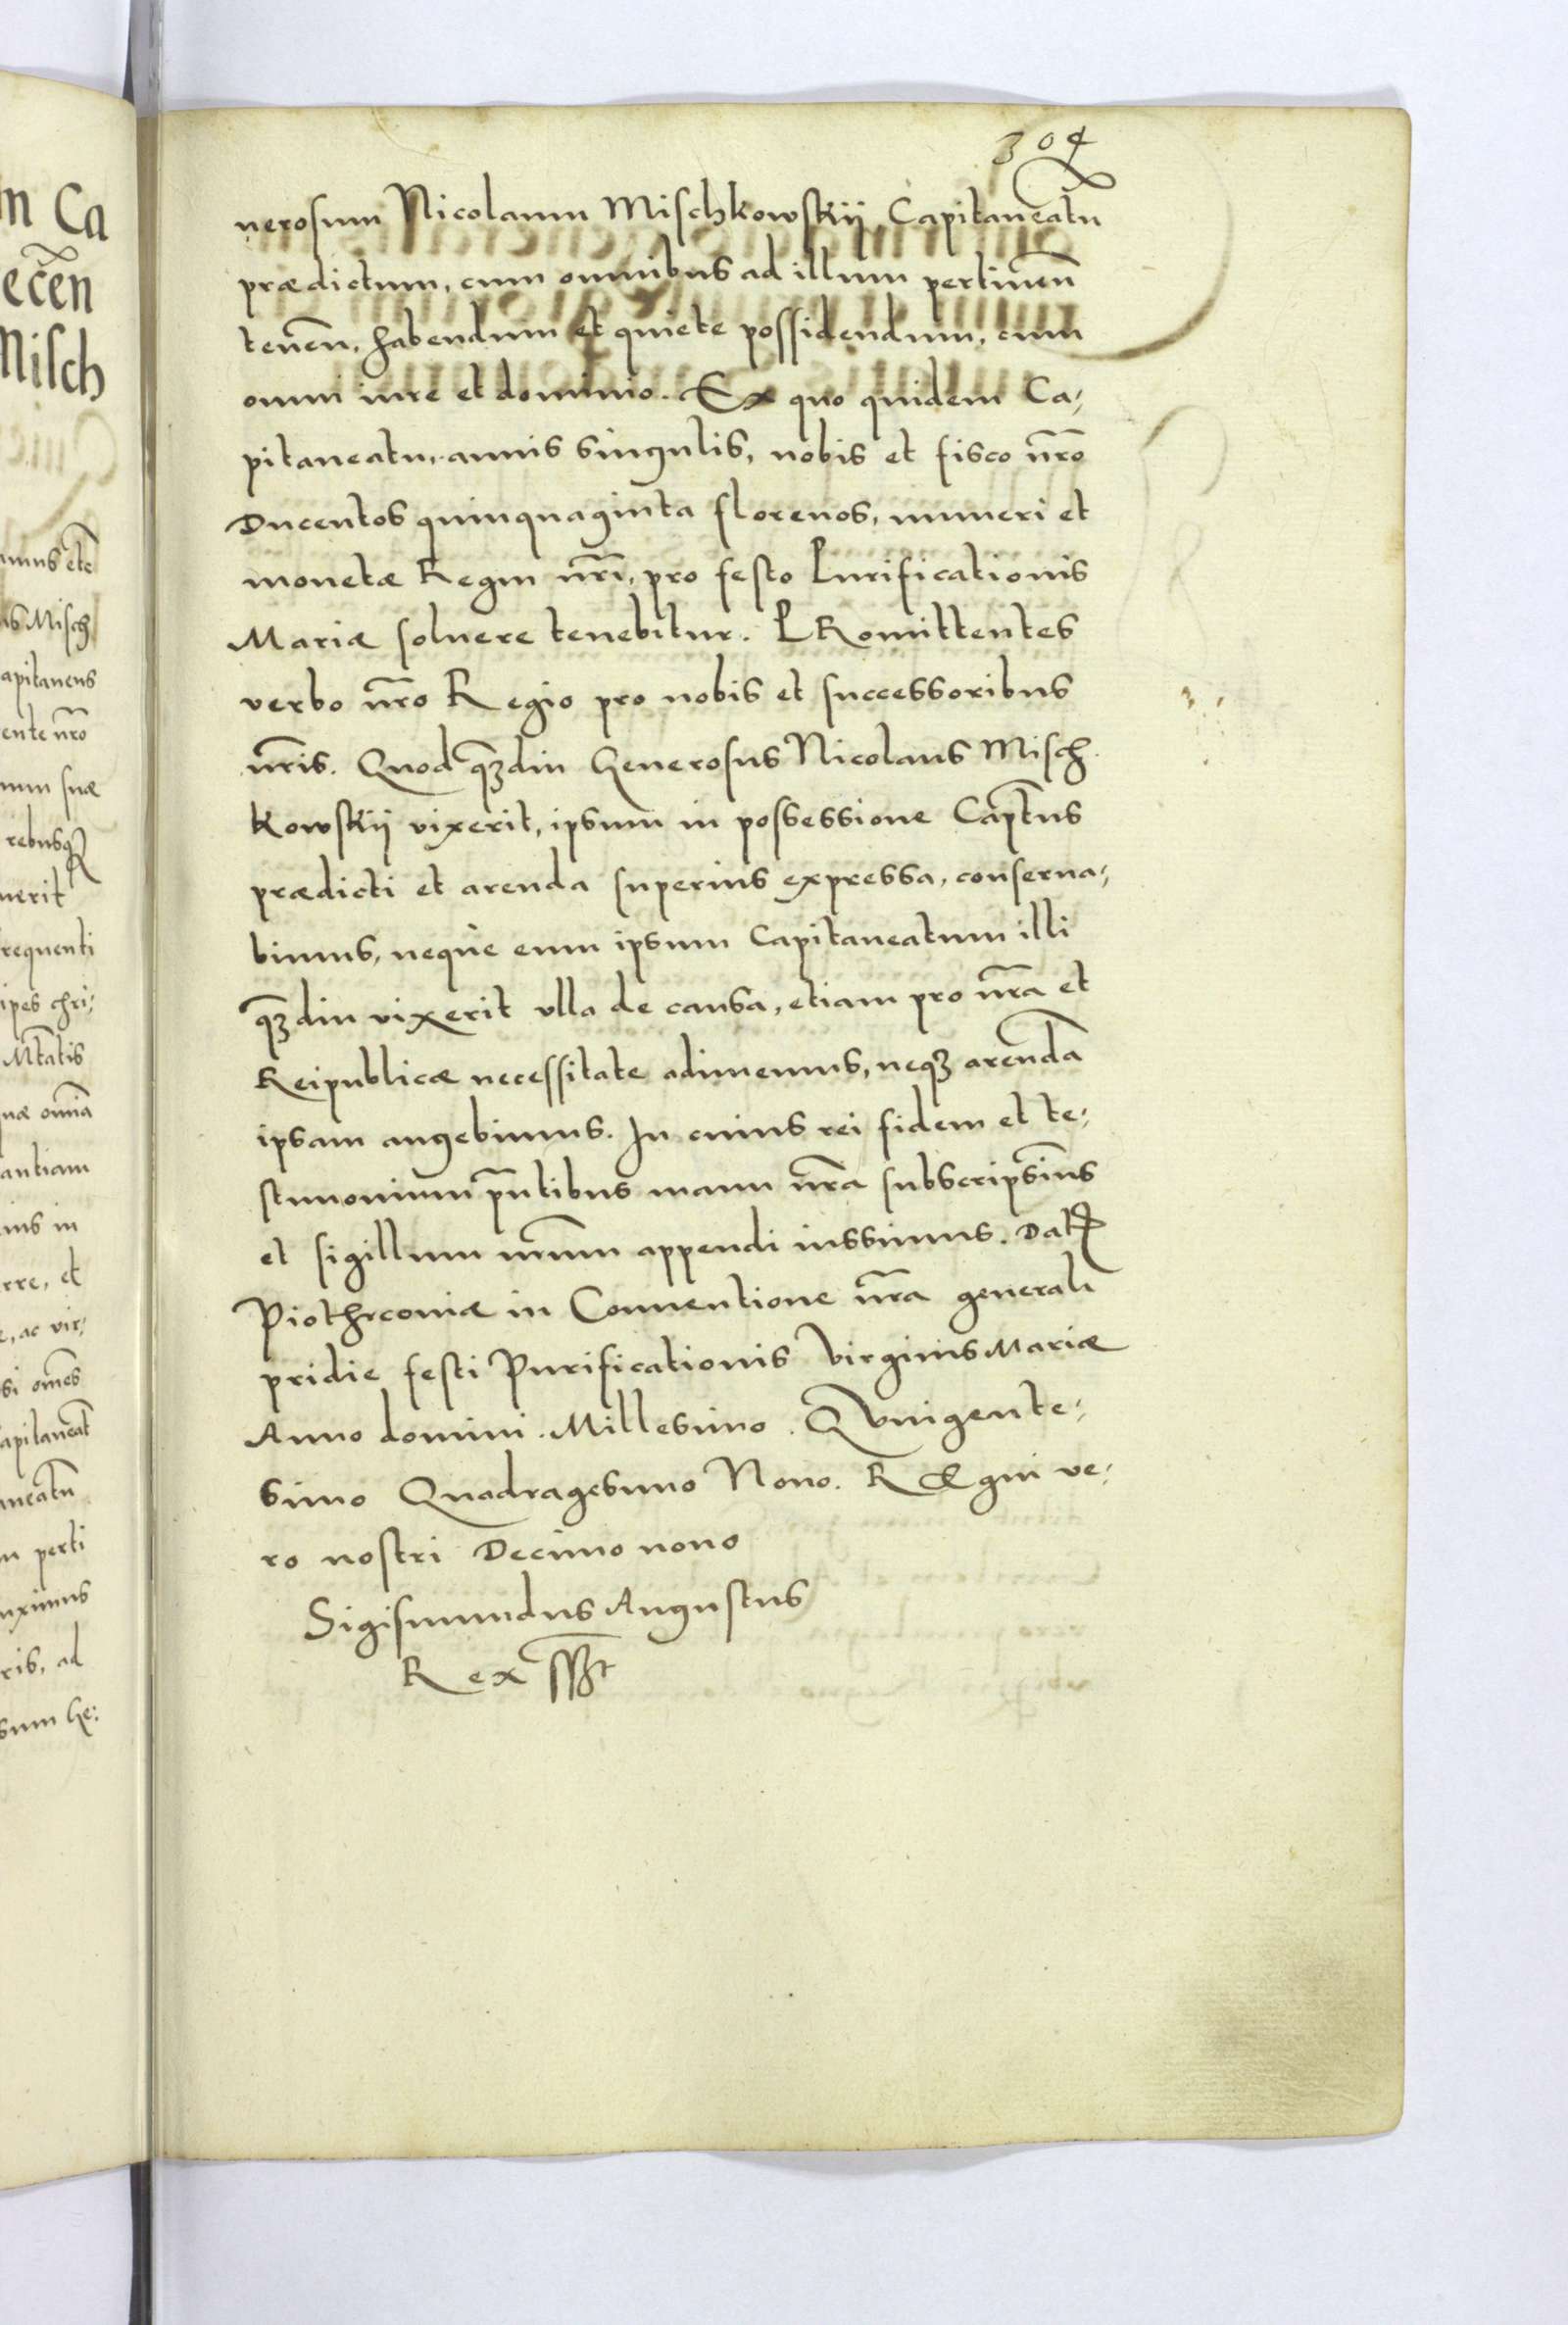 304
nerosum Nicolaum Mischkowskÿ, Capitaneatũ
prædictum, cum omnibus ad illum pertineñ
teneñ, habendum et quiete possidendum, cum
omni iure et dominio. Ex quo quidem Ca-
pitaneatu, annis singulis, nobis et fisco nr̃o
Ducentos quinquaginta florenos, numeri et
monetæ Regni nr̃i, pro festo Purificationis
Mariæ soluere tenebitur. PRomittentes
verbo nr̃o Regio pro nobis et successoribus
nr̃is. Quod qãdiu Generosus Nicolaus Misch
kowskÿ vixerit, ipsum in possessione Captũs
prædicti et arenda superius expressa, conserua-
bimus, neque eum ipsum Capitaneatum illi
qãdiu vixerit vlla de causa, etiam pro nr̃a et
Reipublicæ necessitate adimemus, neqꝫ arendã
ipsam augebimus. In cuius rei fidem et te-
stimonium pñtibus manu nr̃a subscripsim̃s
et sigillum nr̃um appendi iussimus. Datꝭ
Piothrcouiæ in Conuentione nr̃a generali
pridie festi Purificationis Virginis Mariæ
Anno domini. Millesimo. QVuigente-
simo Quadragesimo Nono. REgni ve-
ro nostri Decimo nono
Sigismundus Augustus
Rex sszt
m Ca
eceñ
Misch
imus etc̃
us Misch
apitaneus
ente nr̃o
num suæ
rebusqꝫ
uerit
frequenti
ipes chri-
Mtãtis
uæ omnia
antiam
ius in
rre, et
e, ac vir-
si omẽs
apitaneat̃
aneatũ
m perti
uximus
ris, ad
sum Ge-